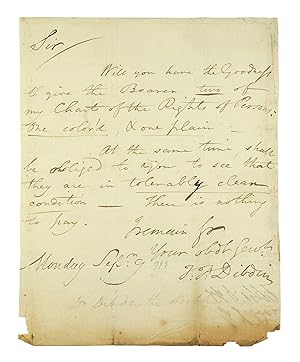 Sir
Will you have the Goodness
to give the Bearer two of
my Charts of the Rights of Persons:
One color'd, & one plain –
At the same time shall
be obliged to you to see that
they are in tolerably clean
condition – There is nothing
to pay.
I remain Sir
Your obdt Servt
Monday Sepr 9
T. F. Dibdin